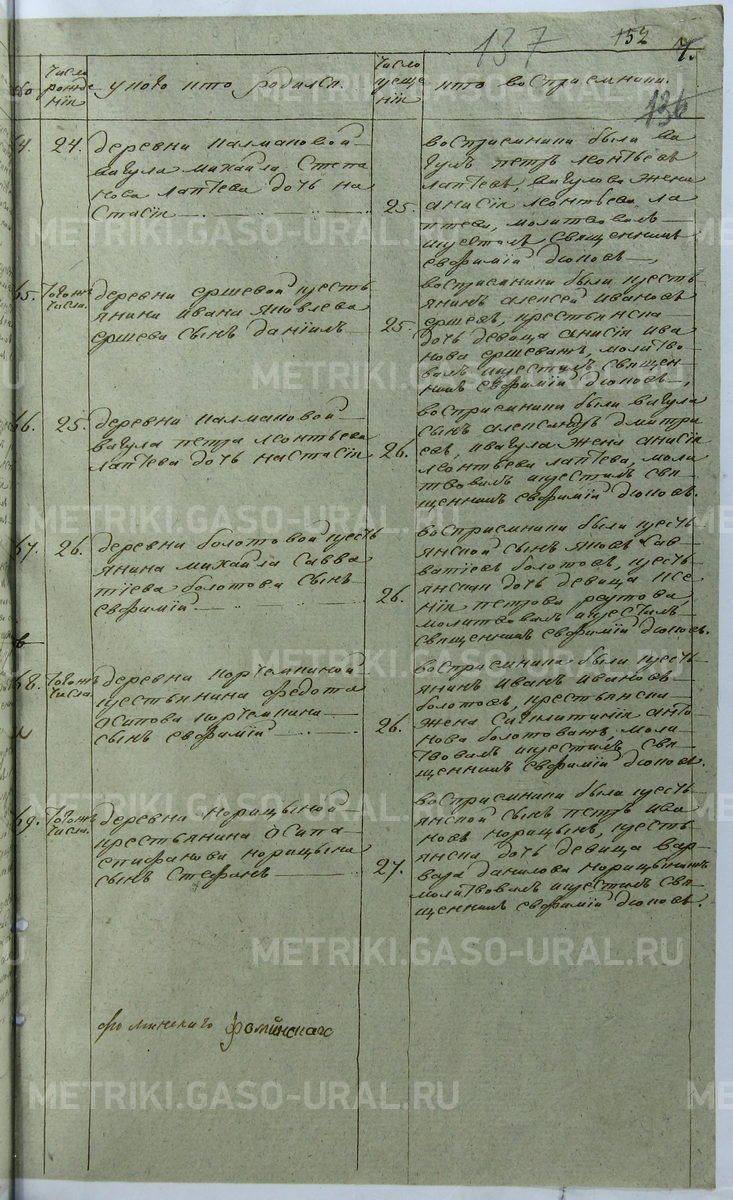 137 152 7.
136
число рожденія
у кого кто родился.
число крещенія
кто воспріемники.
64. 24.
деревни палмановой
вагула михайла Степа
нова лаптева дочь на
стасія
25.
воспріемники были ва
гулъ петръ леонтьевъ
лаптевъ, вагулова жена
анисія леонтьева ла
птева, молитвовалъ
икрестилъ священникъ
евфимій
65. Того жъ числа.
деревни ершевой кресть
янина ивана яковлева
ершева сынъ даніилъ
25.
воспріемники были кресть
янинъ алексей ивановъ
ершевъ, крестьянска
дочь девица ива
нова ершевахъ, молитво
валъ икрестилъ священ
никъ евфимій
66. 25.
деревни палмановой
вагула петра леонтьева
лаптева дочь настасія
26.
воспріемники были вагула
сынъ александръ дмитрі
евъ, ивагула жена анисія
леонтьева лаптева, моли
твовалъ икрестилъ свя
щенникъ евфимій
67. 26.
деревни болотовой кресть
янина михайла Савва
тіева болотова сынъ
евфимій
26.
воспріемники были кресть
янской сынъ яковъ Сав
ватіевъ болотовъ, кресть
янская дочь девица ксе
нія петрова реутова
молитвовалъ икрестилъ
священникъ евфимій
68. Того жъ числа.
деревни
крестьянина федота
осипова
сынъ евфимій
26.
воспріемники были кресть
янинъ иванъ ивановъ
болотовъ, крестьянска
жена анто
нова болотовахъ, моли
твовалъ икрестилъ свя
щенникъ евфимій
69. Того жъ числа.
деревни корицыной
крестьянина осипа
епифанова корицына
сынъ Стефанъ
27.
воспріемники были кресть
янской сынъ петръ ива
новъ корицынъ, кресть
янска дочь девица вар
вара данилова корицыныхъ
молитвовалъ икрестилъ свя
щенникъ евфимій
фоминскаго фоминскаго
METRIKI.GASO-URAL.RU